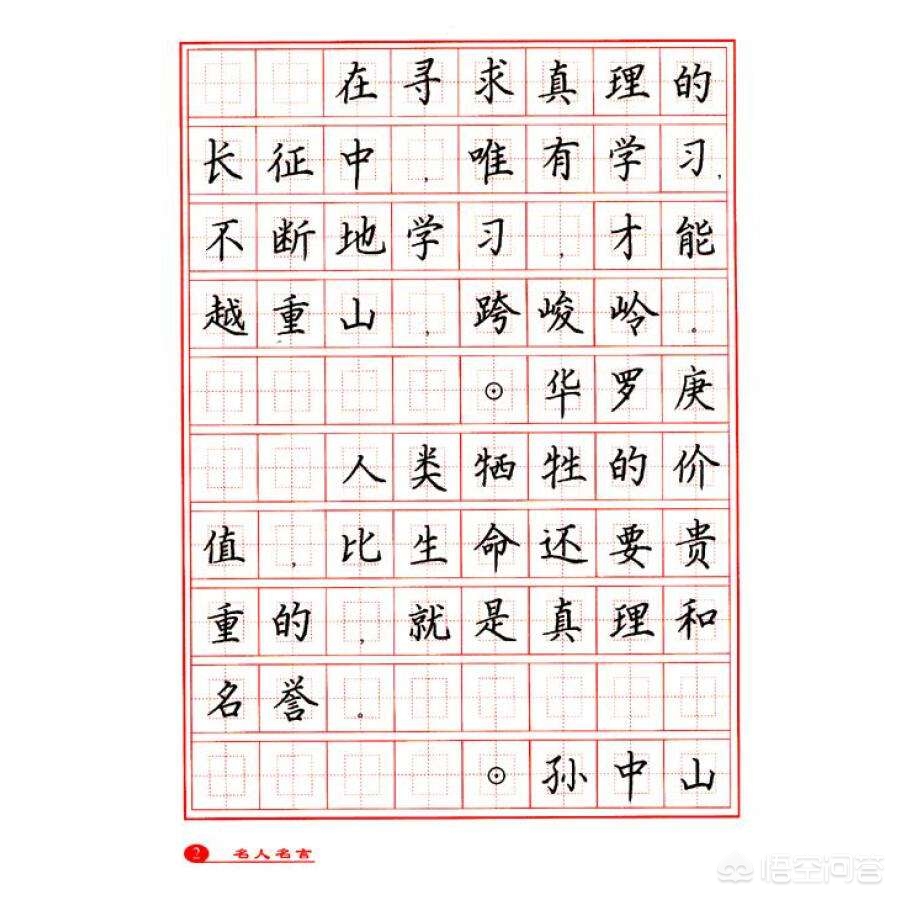 在寻求真理的
长征中，唯有学习，
不断地学习，才能
越重山，跨峻岭。
⊙华罗庚
人类牺牲的价
值，比生命还要贵
重的，就是真理和
名誉。
⊙孙中山
2 名人名言
悟空问答